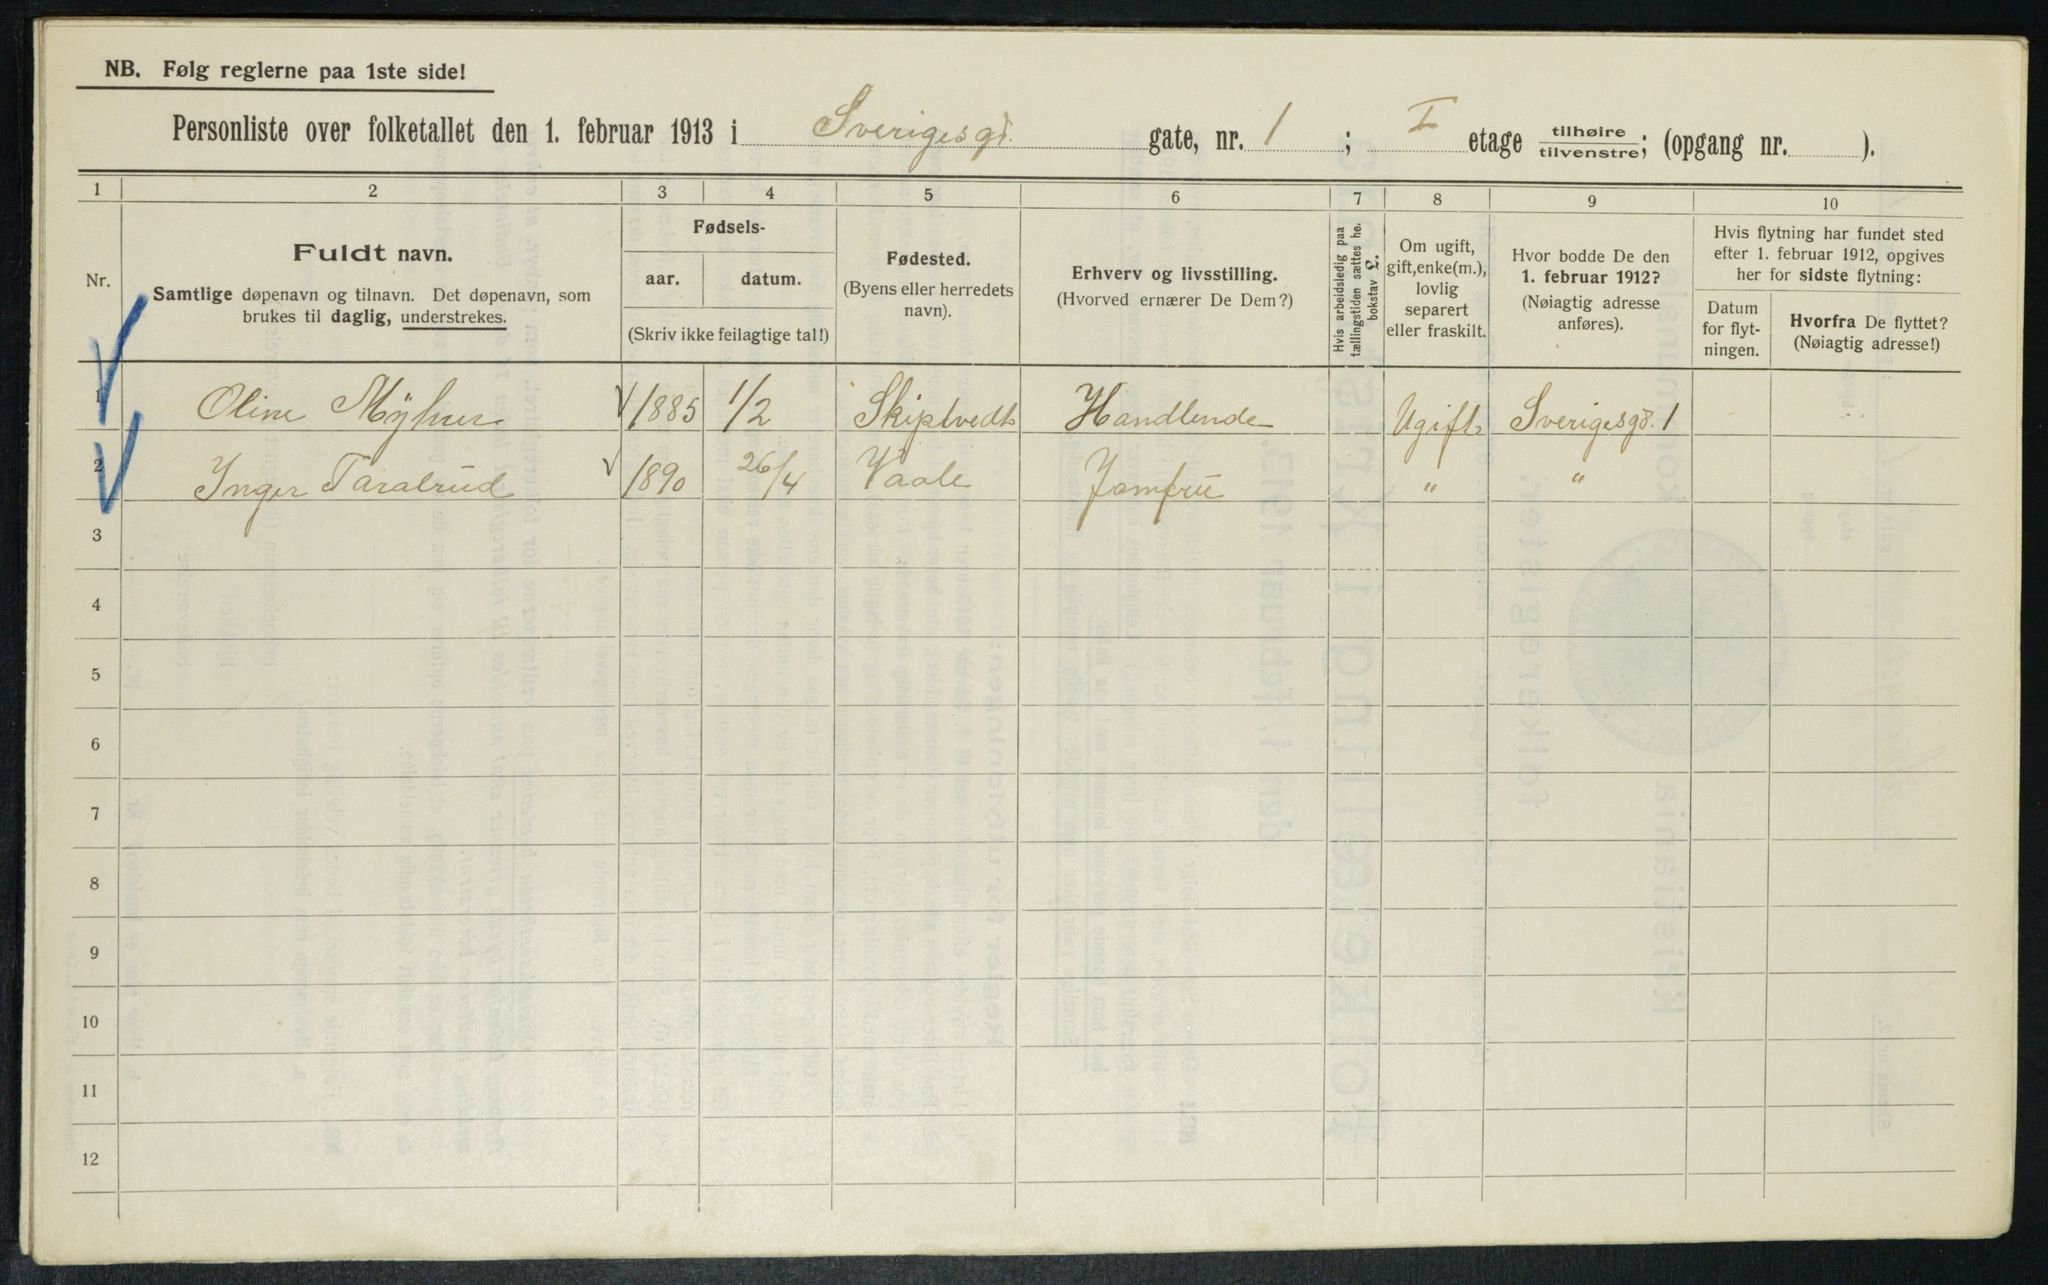 NB. Følg reglerne paa 1ste side!
Personliste over folketallet den 1. februar 1913 i Sverigesgd. gate, nr. 1 ; I etage tilhøire/tilvenstre; (opgang nr. ).
1 2 3 4 5 6 7 8 9 10
Nr.
Fuldt navn.
Samtlige døpenavn og tilnavn. Det døpenavn, som
brukes til daglig, understrekes.
Fødsels-
aar. datum.
(Skriv ikke feilagtige tal!)
Fødested.
(Byens eller herredets
navn).
Erhverv og livsstilling.
(Hvorved ernærer De Dem?)
Hvis arbeidsledig paa
tællingstiden sættes he.
bokstav L.
Om ugift,
gift, enke(m.),
lovlig
separert
eller fraskilt.
Hvor bodde De den
1. februar 1912?
(Nøiagtig adresse
anføres).
Hvis flytning har fundet sted
efter 1. februar 1912, opgives
her for sidste flytning:
Datum
for flyt-
ningen.
Hvorfra De flyttet?
(Nøiagtig adresse!)
1 Oline Myhrer 1885 1/2 Skiptvedt Handlende Ugift Sverigesgd. 1
2 Inger Taralrud 1890 26/4 Vaale Jomfru " "
3
4
5
6
7
8
9
10
11
12